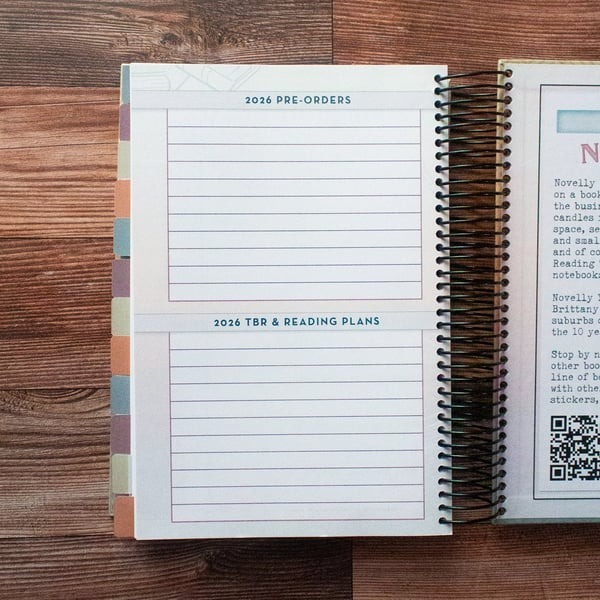 2026 PRE-ORDERS
2026 TBR & READING PLANS
N
Novelly
on a book
the busin
candles
space, se
and smal
and of co
Reading
notebooks
Novelly
Brittany
suburbs
the 10 ye
Stop by
other boo
line of bo
with othe
stickers,